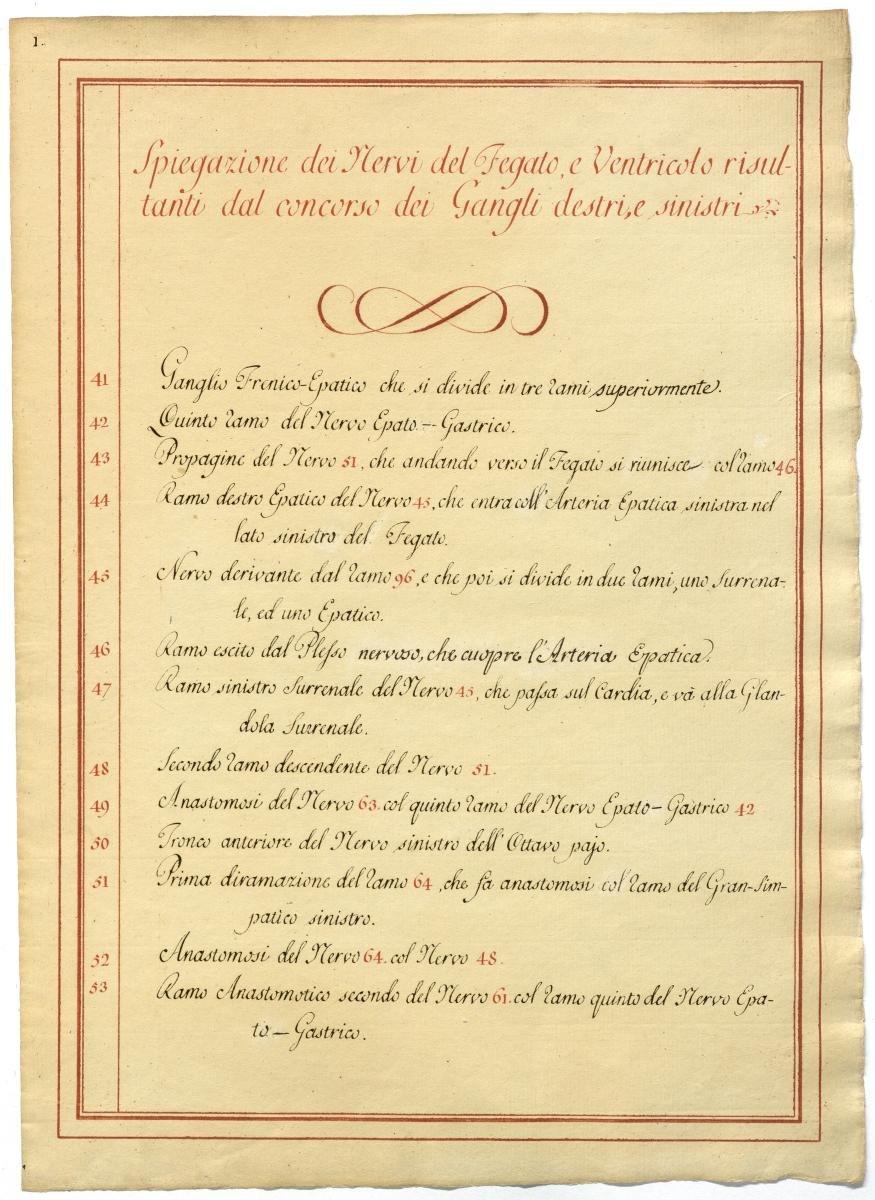 1.
Spiegazione dei Nervi del Fegato, e Ventricolo risul-
tanti dal concorso dei Gangli destri, e sinistri
41 Ganglio Frenico-Epatico che si divide in tre rami superiormente.
42 Quinto ramo del Nervo Epato-Gastrico.
43 Propagine del Nervo 51, che andando verso il Fegato si riunisce col ramo 46.
44 Ramo destro Epatico del Nervo 45, che entra coll'Arteria Epatica sinistra nel
lato sinistro del Fegato.
45 Nervo derivante dal ramo 96, e che poi si divide in due rami, uno Surrena-
le, ed uno Epatico.
46 Ramo escito dal Plesso nervoso, che cuopre l'Arteria Epatica.
47 Ramo sinistro Surrenale del Nervo 45, che passa sul Cardia, e và alla Glan-
dola Surrenale.
48 Secondo ramo descendente del Nervo 51.
49 Anastomosi del Nervo 63. col quinto ramo del Nervo Epato-Gastrico 42
50 Tronco anteriore del Nervo sinistro dell'Ottavo pajo.
51 Prima diramazione del ramo 64, che fa anastomosi col ramo del Gran-Sim-
patico sinistro.
52 Anastomosi del Nervo 64. col Nervo 48.
53 Ramo Anastomotico secondo del Nervo 61. col ramo quinto del Nervo Epa-
to-Gastrico.